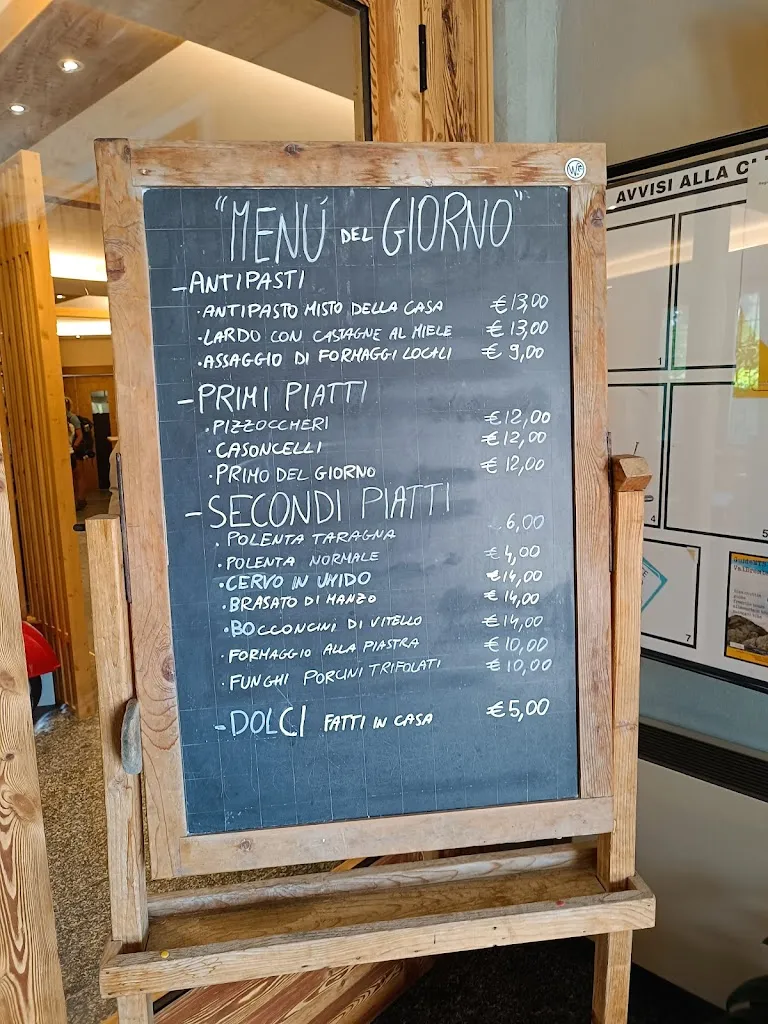 "MENÚ DEL GIORNO"
- ANTIPASTI
· ANTIPASTO MISTO DELLA CASA € 13,00
· LARDO CON CASTAGNE AL MIELE € 13,00
· ASSAGGIO DI FORMAGGI LOCALI € 9,00
- PRIMI PIATTI
· PIZZOCCHERI € 12,00
· CASONCELLI € 12,00
· PRIMO DEL GIORNO € 12,00
- SECONDI PIATTI
· POLENTA TARAGNA 6,00
· POLENTA NORMALE € 4,00
· CERVO IN UMIDO € 14,00
· BRASATO DI MANZO € 14,00
· BOCCONCINI DI VITELLO € 14,00
· FORMAGGIO ALLA PIASTRA € 10,00
· FUNGHI PORCINI TRIFOLATI € 10,00
- DOLCI FATTI IN CASA € 5,00
AVVISI ALLA
1
4
5
7